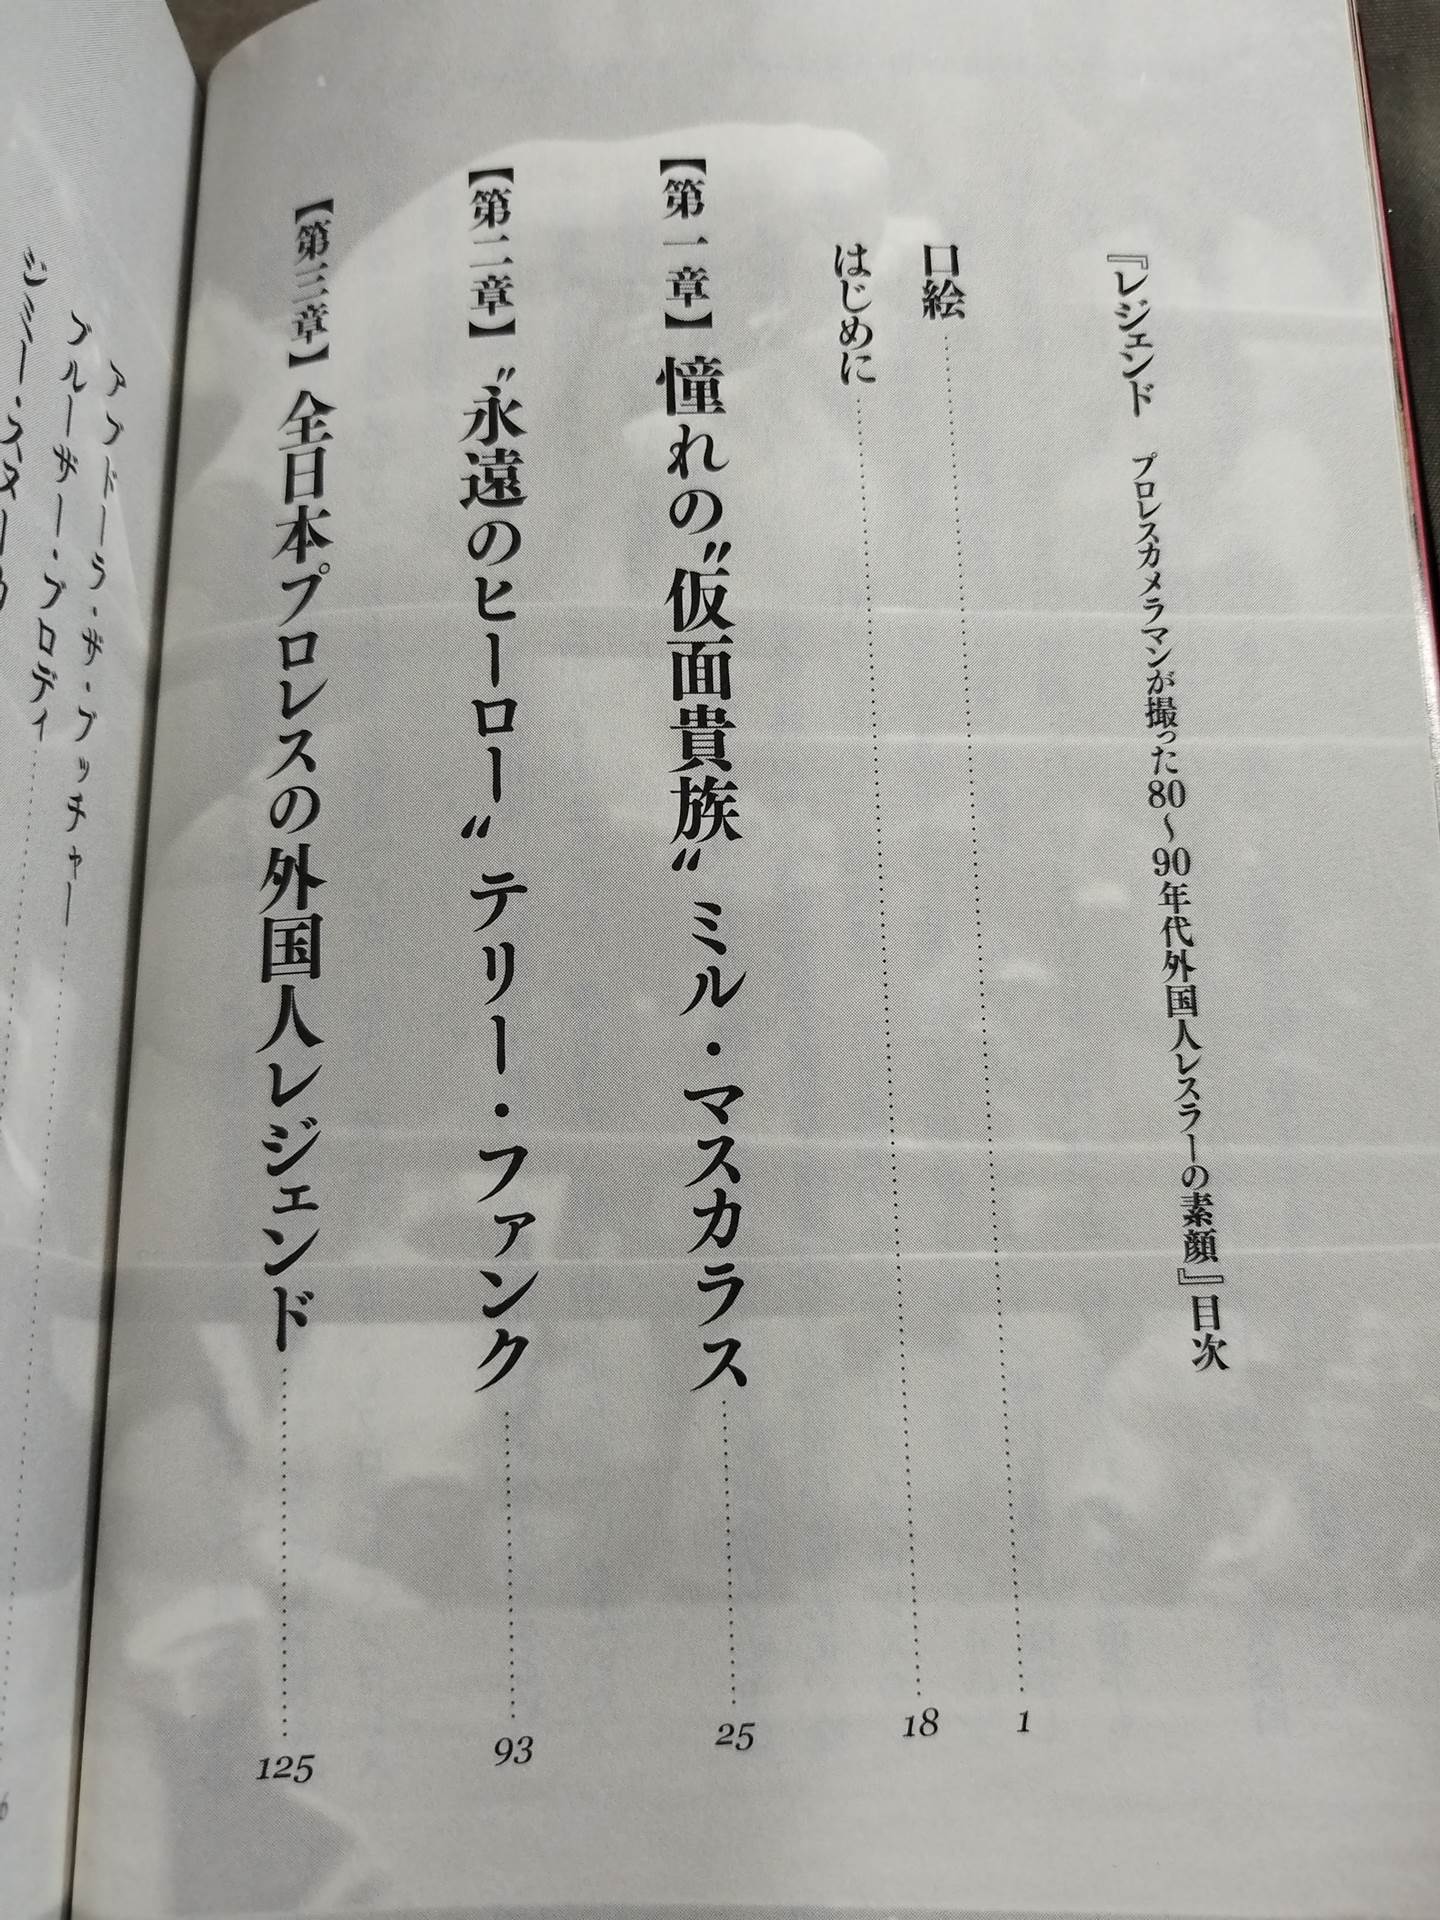 『レジェンド プロレスカメラマンが撮った80〜90年代外国人レスラーの素顔』目次
口絵……1
はじめに……18
【第一章】憧れの〝仮面貴族〟ミル・マスカラス……25
【第二章】〝永遠のヒーロー〟テリー・ファンク……93
【第三章】全日本プロレスの外国人レジェンド……125
アブドーラ・ザ・ブッチャー……
ブルーザー・ブロディ……
ジミー・スヌーカ